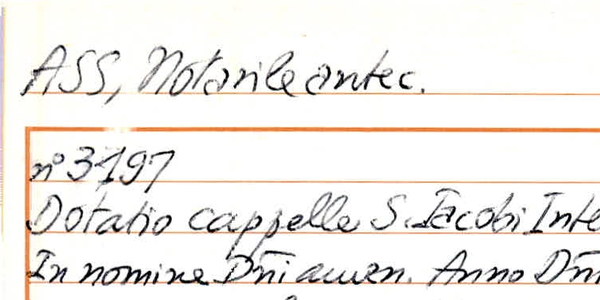 ASS, Notarile antec.
n° 3197
Dotatio cappelle S. Iacobi Inte
In nomine Dñi amen. Anno Dñi